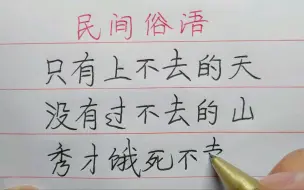 民间俗语
只有上不去的天
没有过不去的山
秀才饿死不